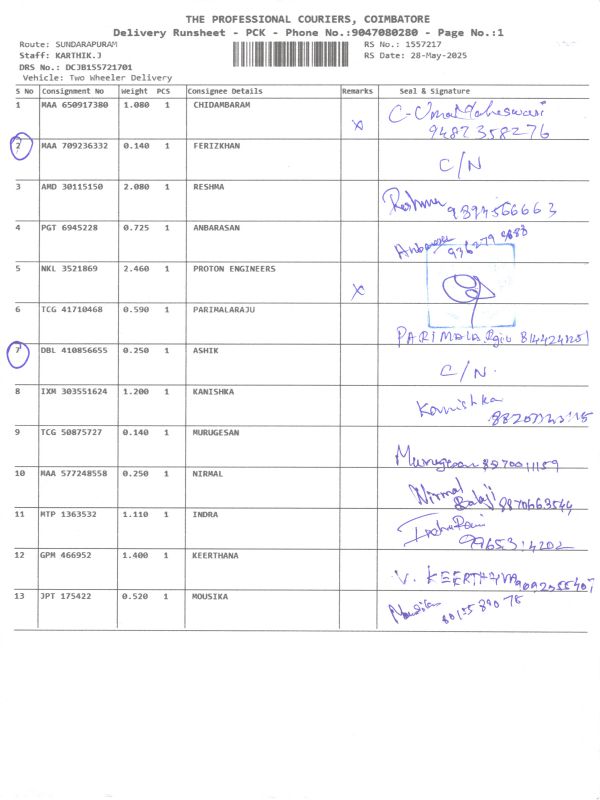 THE PROFESSIONAL COURIERS, COIMBATORE
Delivery Runsheet - PCK - Phone No.:9047080280 - Page No.:1
Route: SUNDARAPURAM RS No.: 1557217
Staff: KARTHIK.J RS Date: 28-May-2025
DRS No.: DCJB155721701
Vehicle: Two Wheeler Delivery
S No Consignment No Weight PCS Consignee Details Remarks Seal & Signature
1 MAA 650917380 1.080 1 CHIDAMBARAM X C-Uma Maheswari
9487358276
2 MAA 709236332 0.140 1 FERIZKHAN C/N
3 AMD 30115150 2.080 1 RESHMA Reshma 9894566663
4 PGT 6945228 0.725 1 ANBARASAN Anbarasan
5 NKL 3521869 2.460 1 PROTON ENGINEERS X
6 TCG 41710468 0.590 1 PARIMALARAJU PARIMALA
7 DBL 410856655 0.250 1 ASHIK C/N.
8 IXM 303551624 1.200 1 KANISHKA Kanishka
9 TCG 50875727 0.140 1 MURUGESAN Murugesan
10 MAA 577248558 0.250 1 NIRMAL Nirmal
Balaji
11 MTP 1363532 1.110 1 INDRA
12 GPM 466952 1.400 1 KEERTHANA V. KEERTHANA
13 JPT 175422 0.520 1 MOUSIKA